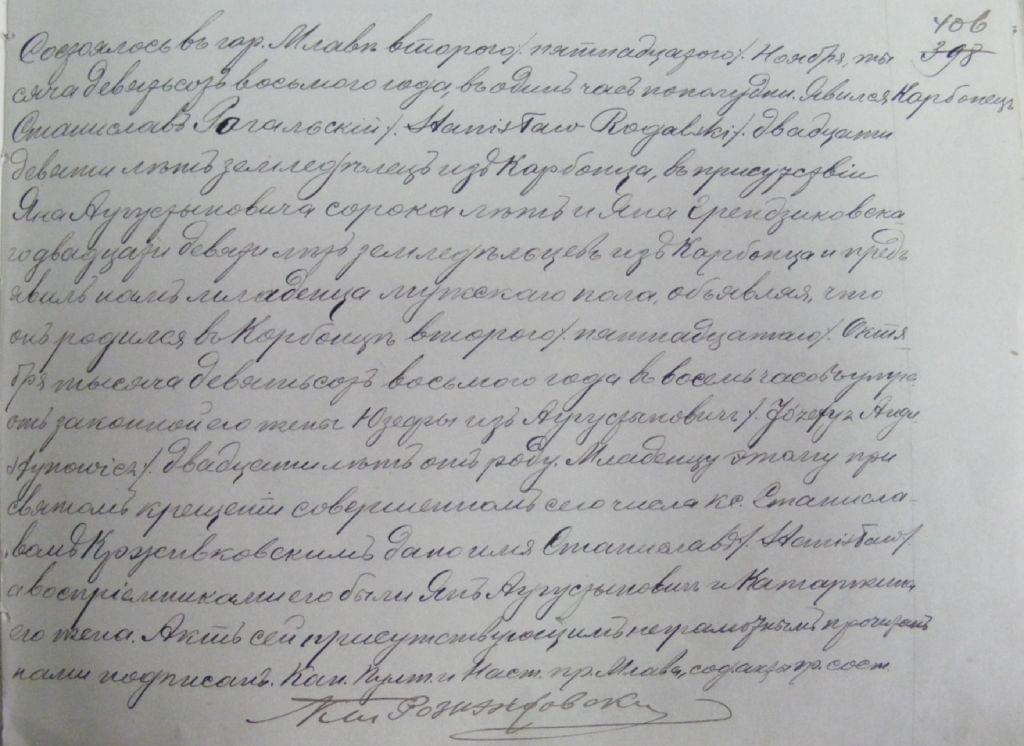 406
398
Карбонецъ
Состоялось въ гор. Млавѣ второго /:пятнадцатого/: Ноября, ты
сяча девятьсотъ восьмого года, въ одинъ часъ пополудни. Явился
Станиславъ Рогальскій /:Stanisław Rogalski/: двадцати
девяти лѣтъ земледѣлецъ изъ Карбонца, въ присутствіи
Яна Аугустыновича сорока лѣтъ и Яна
го двадцати девяти лѣтъ земледѣльцевъ изъ Карбонца и предъ
явилъ намъ младенца мужскаго пола, объявляя, что
онъ родился въ Карбонцѣ второго /:пятнадцатаго/: Октя
бря тысяча девятьсотъ восьмого года въ восемь часовъ утра
отъ законной его жены Юзефы изъ Аугустыновичъ /:Józefy z Augu
stynowicz/: двадцати лѣтъ отъ роду. Младенцу этому при
святомъ крещеніи совершенномъ сего числа кс. Станисла-
вомъ Кржившковскимъ дано имя Станиславъ /:Stanisław/:
а воспріемниками его были Янъ Аугустыновичъ и Катаржина
его жена. Актъ сей присутствующимъ неграмотнымъ прочитанъ
нами подписанъ. Кан. Култ. и Наст. пр. Млава, содержащ. гр. сост.